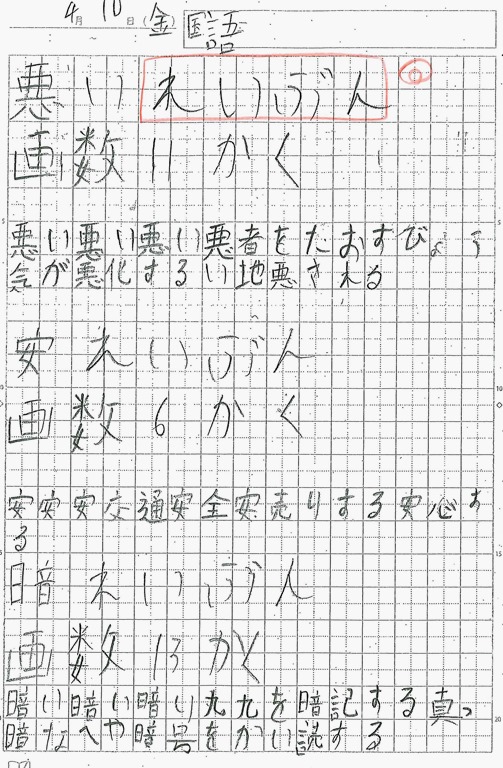 4月10日(金) 国語
悪い れいぶん
画数 11 かく
悪い悪い悪い悪者をたおすびょう
気が悪化するい地悪される
安 れいぶん
画数 6 かく
安安安交通安全安売りする安心す
る
暗 れいぶん
画数 13 かく
暗い暗い暗い九九を暗記する真っ
暗なへや暗号をかい読する